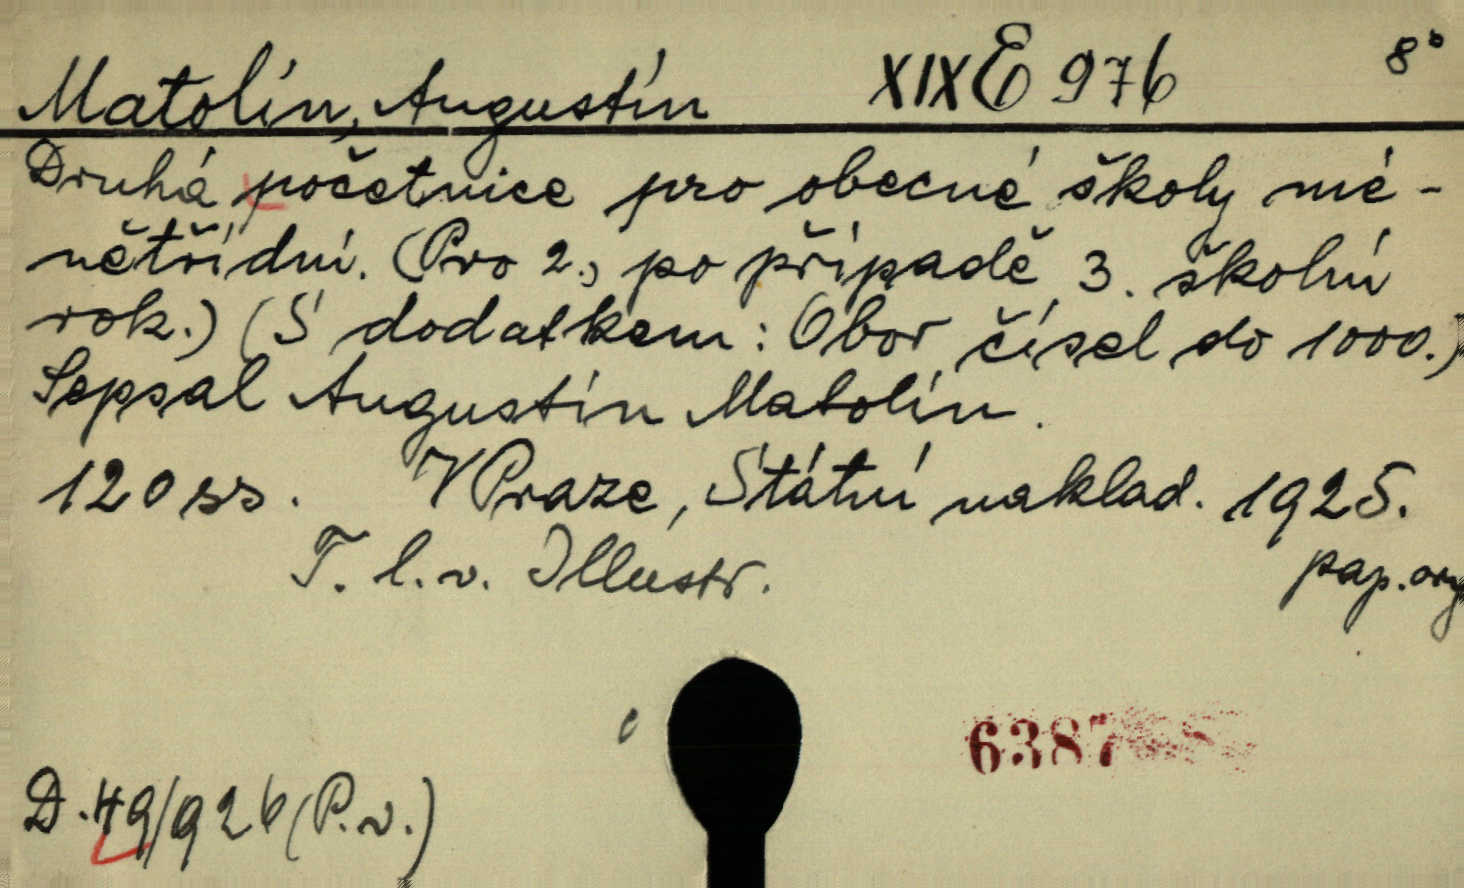 Matolín, Augustín XIX E 976 8°
Druhá početnice pro obecné školy mé-
nětřídní. (Pro 2., po případě 3. školní
rok.) (S dodatkem: Obor čísel do 1000.)
Sepsal Augustín Matolín.
120 ss. V Praze, Státní naklad. 1925.
T. l. v. Illustr. pap. org
6387
D. 49/926 (P. v.)